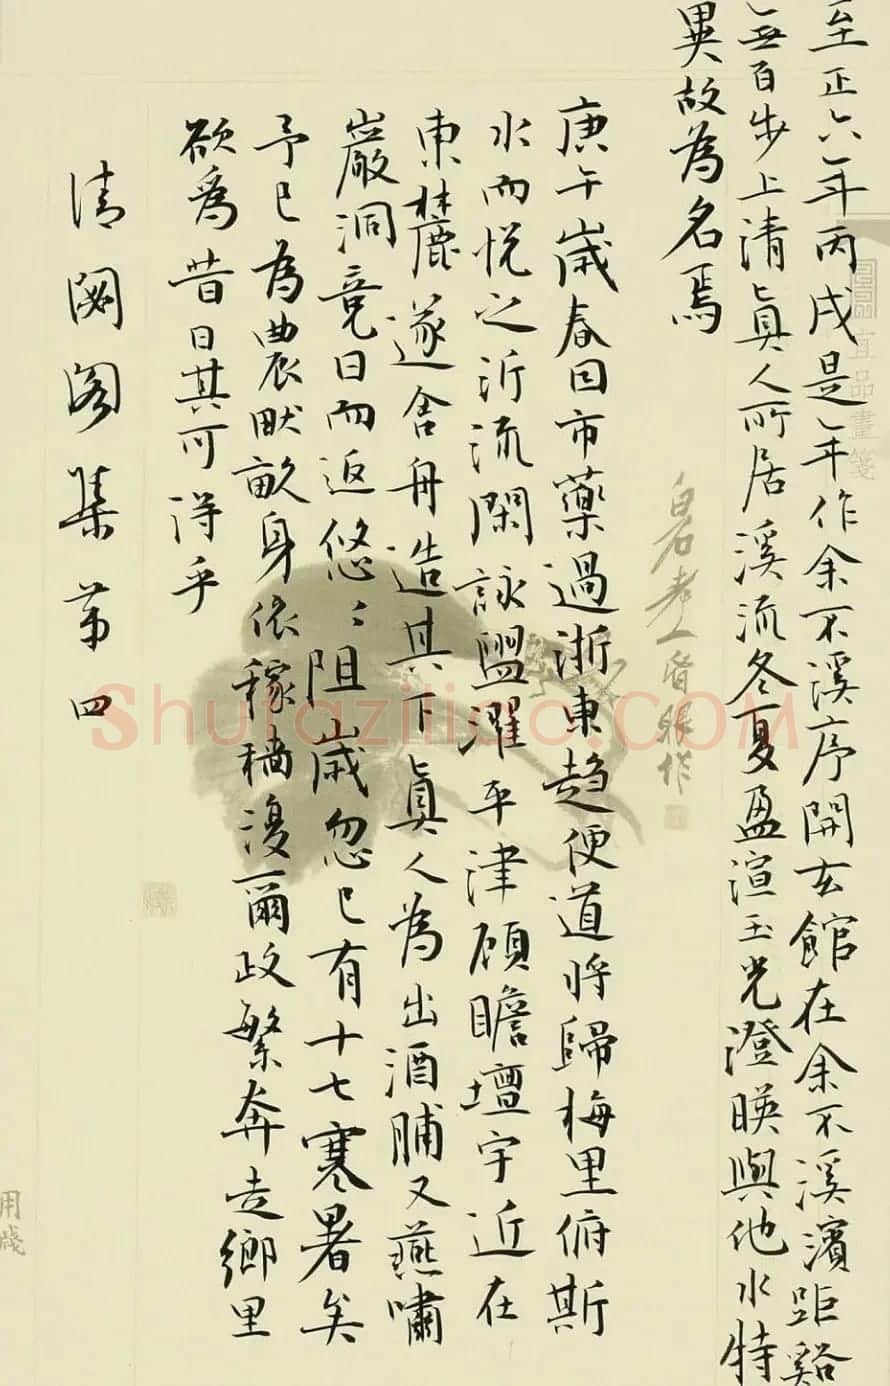 至正六年丙戌是年作余不溪序開玄館在余不溪濱距谿
無百步上清真人所居溪流冬夏盈渲玉光澄暎與他水特
異故為名焉
庚午歲春因市藥過浙東趋便道将歸梅里俯斯
水而悦之沂流閑詠盥濯平津顧瞻壇宇近在
東麓遂舍舟造其下真人為出酒脯又燕嘯
巖洞竟日而返悠:阻歲忽已有十七寒暑矣
予已為農畎畝身依稼穡漫爾政繁奔走鄉里
欲為昔日其可得乎
清閟阁集第四
白石老人
作
宜品畫箋
用箋
Shufaziliao.COM